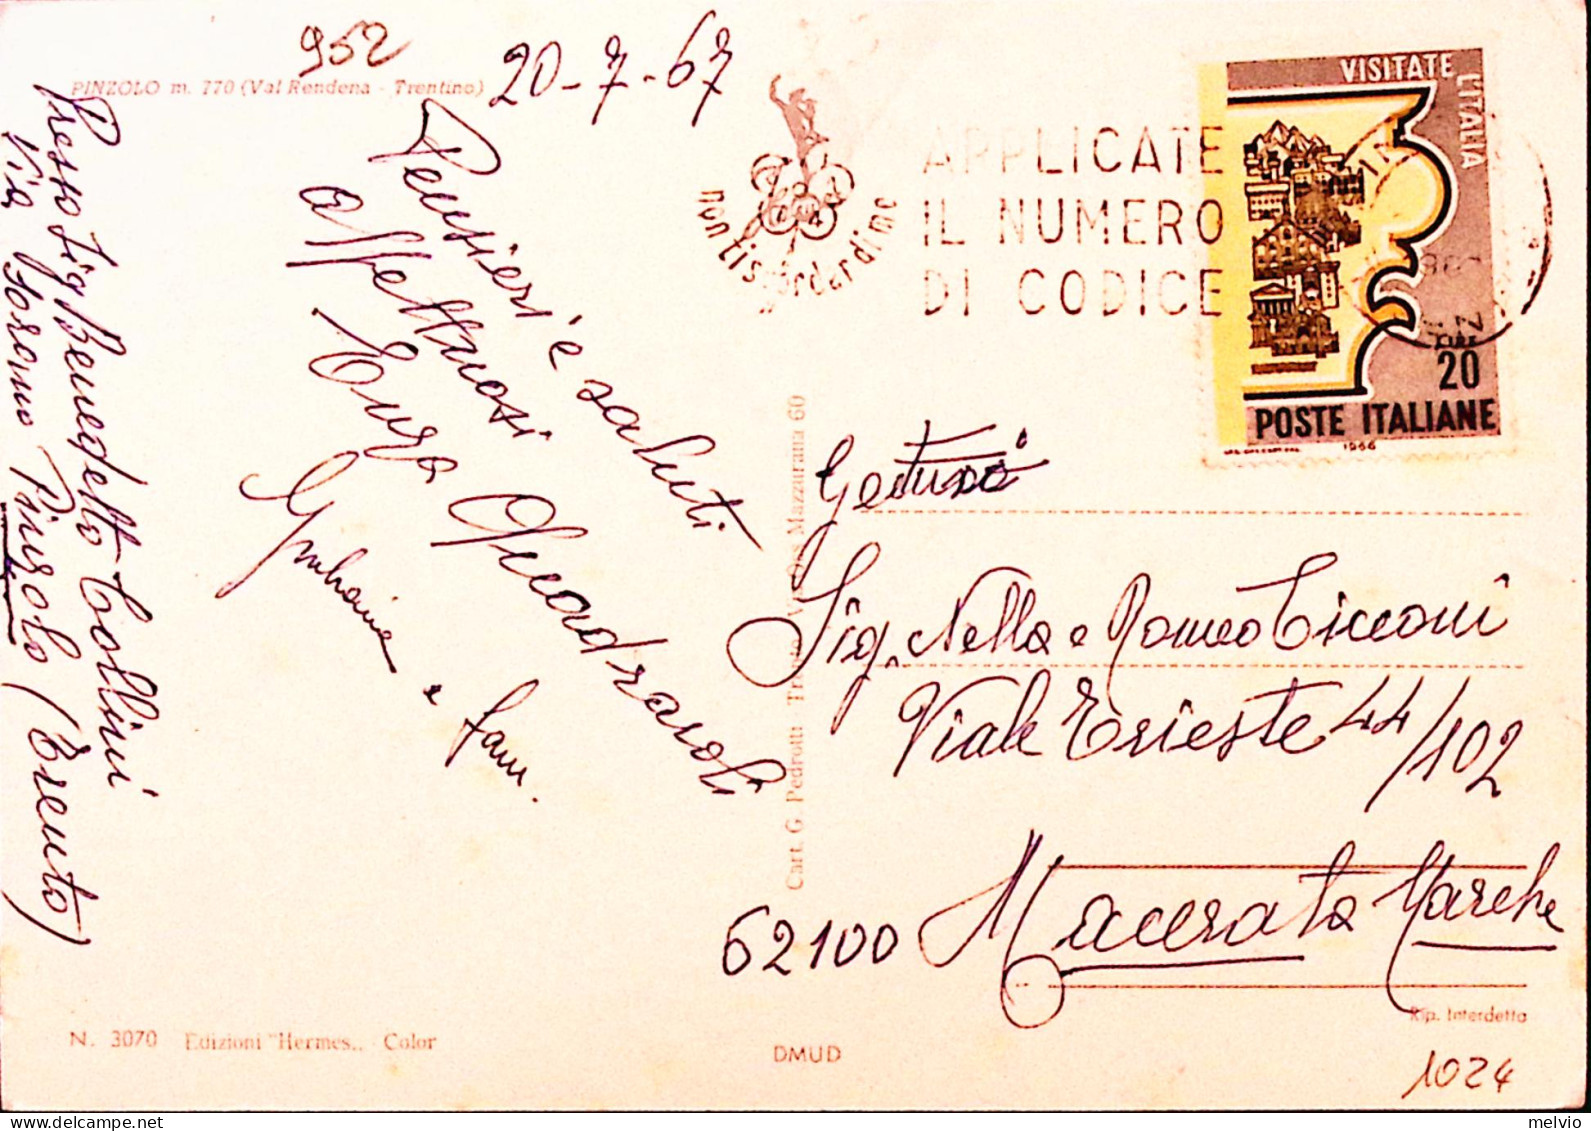 952
PINZOLO m. 770 (Val Rendena - Trentino)
20-7-67
Pensieri e saluti
affettuosi
Enza Quadraroli
e fam.
Presso Sig Benedetto Collini
Via Pinzolo (Trento)
non ti scordar di me
APPLICATE
IL NUMERO
DI CODICE
VISITATE L'ITALIA
LIRE
20
POSTE ITALIANE
1966
Sig. Nella e Romeo Cicconi
Viale Trieste 44/102
62100 Macerata Marche
Cart. G. Pedrotti Trento Mazzurana 60
N. 3070 Edizioni "Hermes„ Color
DMUD
Rip. Interdetta
1024
melvio